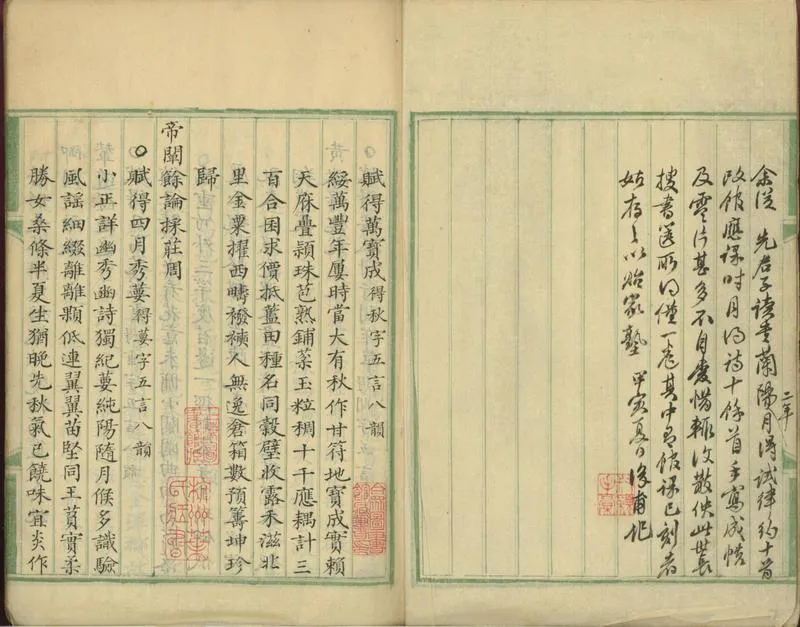 余從 先君子讀書蘭陽二年月得試律約十首
改館應課時月得詩十餘首手寫成帙
及零片甚多不自愛惜輒復散佚此
搜書篋所得僅一卷其中多館課已刻者
姑存之以貽家塾 甲寅夏日 甫記
○賦得萬寶成得秋字五言八韻
綏萬豐年屢時當大有秋作甘符地寶成實賴
天庥疊穎珠苞熟鋪菜玉粒稠十千應耦計三
百合囷求價抵藍田種名同穀璧收露禾滋北
里金粟擢西疇襏襫人無逸倉箱數預籌坤珍
歸
帝 餘論採莊周
○賦得四月秀葽得葽字五言八韻
小正詳幽秀豳詩獨紀葽純陽隨月候多識驗
風謠細綴離離顆低連翼翼苗堅同王萯實柔
勝女桑條半夏生猶晚先秋氣已饒味宜炎作